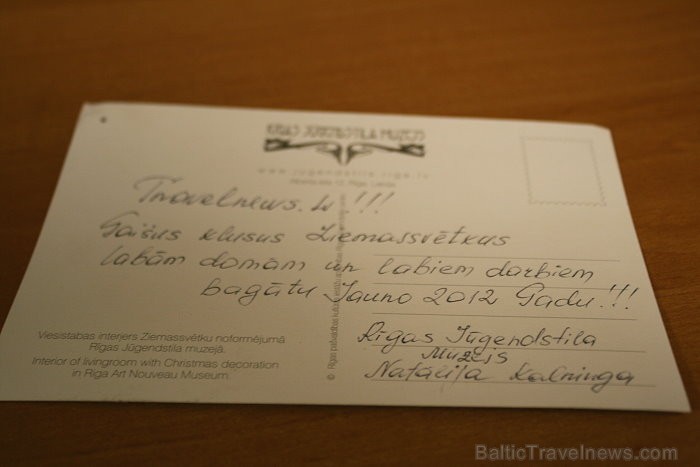 RĪGAS JŪGENDSTILA MUZEJS
www.jugendstils.riga.lv
Travelnews.lv !!!
Gaišus klusus Ziemassvētkus
labām domām un labiem darbiem
bagātu Jauno 2012 Gadu!!!
Rīgas Jūgendstila
Muzejs
Natālija Kalniņa
Viesistabas interjers Ziemassvētku noformējumā
Rīgas Jūgendstila muzejā.
Interior of livingroom with Christmas decoration
in Riga Art Nouveau Museum.
BalticTravelnews.com